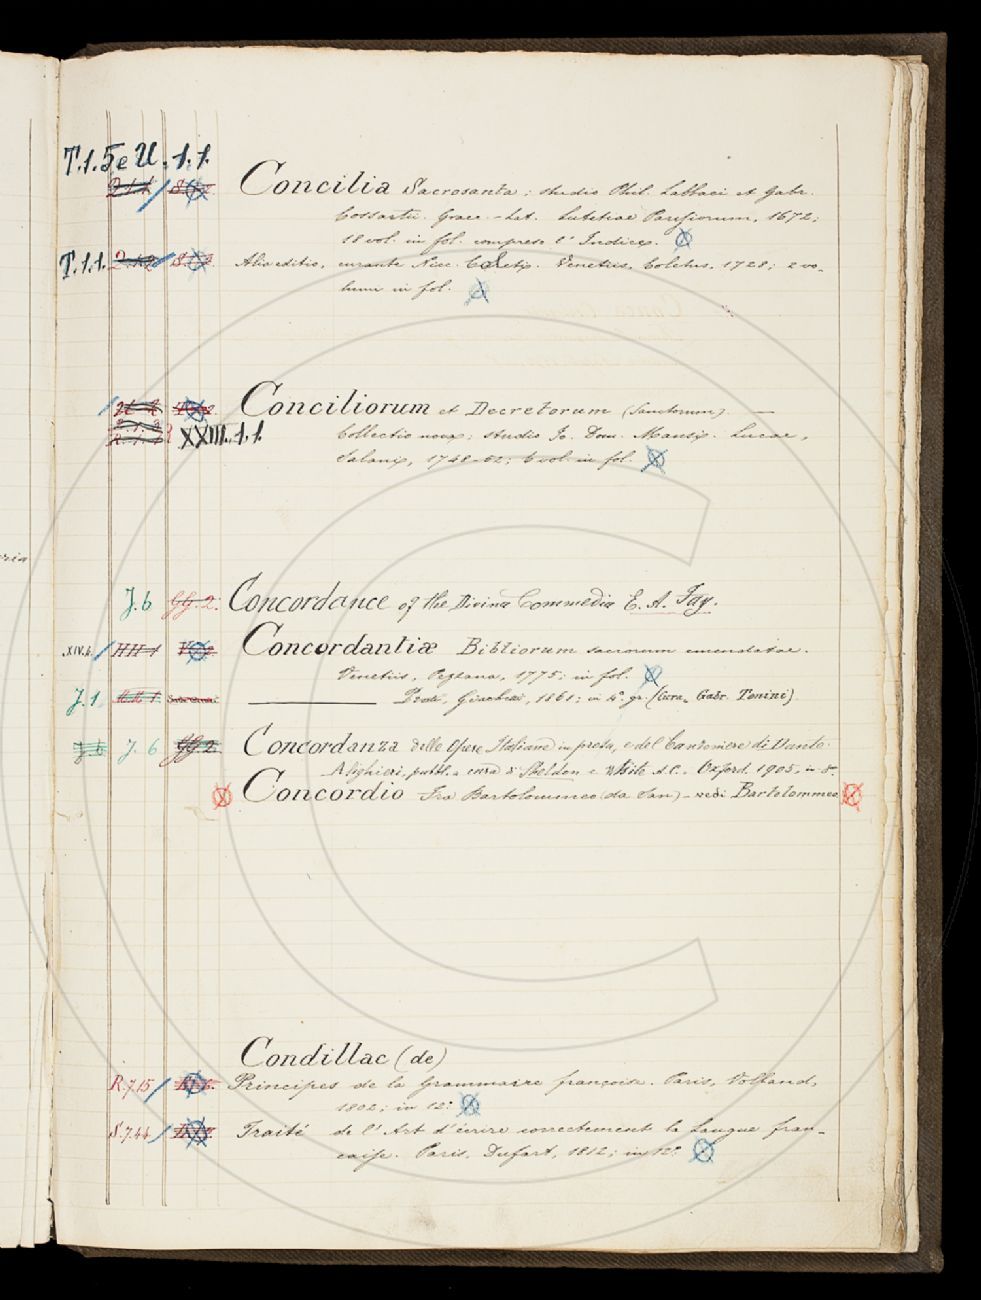 T.1.5 e U.1.1.
Concilia Sacrosanta; studio Phil. Labbaei et Gabr.
Cossartii. Graec.-Lat. Lutetiae Parisiorum, 1672;
18 vol. in fol. compreso l'Indice.
T.1.1. Alia editio, curante Nicc. Coleti. Venetiis, Coletus, 1728; 2 vo-
lumi in fol.
Conciliorum et Decretorum (Sanctorum). —
XXIII.1.1. Collectio nova; studio Io. Dom. Mansi. Lucae,
Salani, 1748-52; 6 vol. in fol.
J.6 GG.2. Concordance of the Divina Commedia E. A. Fay.
XIV.4. HH.1 Concordantiæ Bibliorum sacrorum emendatae.
Venetiis, Pezzana, 1775; in fol.
J.1 Prati, Giachetti, 1861; in 4.° gr. (Cura, Gabr. Tonini)
J.6 J.6 GG.2. Concordanza delle Opere Italiane in prosa, e del Canzoniere di Dante
Alighieri, pubbl. a cura di Sheldon e White A.C. Oxford. 1905, in 8.°
Concordio Fra Bartolommeo (da San) - vedi Bartolommeo
Condillac (de)
R.7.15 Principes de la Grammaire françoise. Paris, Volland,
1802; in 12.°
S.7.44 Traité de l'Art d'écrire correctement la langue fran-
caise. Paris, Dufart, 1812; in 12.°